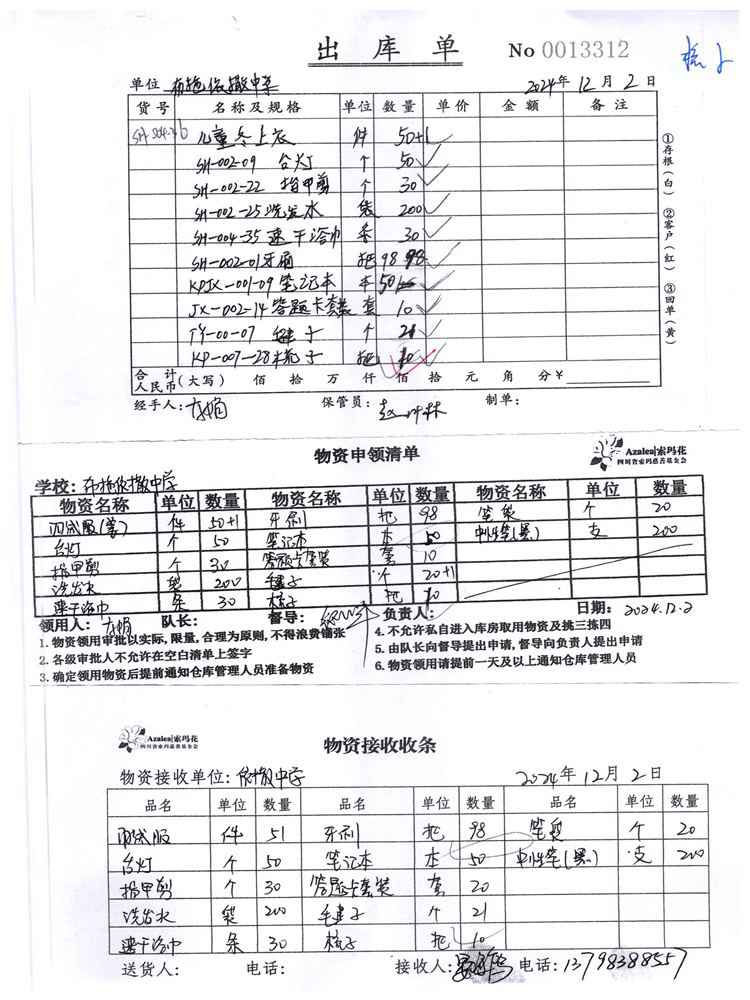 出库单 No 0013312
单位 布拖依撒中学 2024年12月2日
货号 名称及规格 单位 数量 单价 金额 备注
儿童冬上衣 件 50+1
SH-002-09 台灯 个 50
SH-002-22 指甲剪 个 30
SH-002-25 洗发水 袋 200
SH-004-35 速干浴巾 条 30
SH-002-01 牙刷 把 98 98
KPJX-001-09 笔记本 本 50
JX-002-14 答题卡套装 套 10
TY-00-07 毽子 个 21
KP-007-28 梳子 把 10
合计
人民币(大写) 佰 拾 万 仟 佰 拾 元 角 分 ¥
经手人: 保管员: 制单:
①存根(白) ②客户(红) ③回单(黄)
物资申领清单 Azalea|索玛花
四川省索玛慈善基金会
学校: 布拖依撒中学
物资名称 单位 数量 物资名称 单位 数量 物资名称 单位 数量
件 50+1 牙刷 把 98 笔袋 个 20
台灯 个 50 笔记本 本 50 中性笔(黑) 支 200
指甲剪 个 30 答题卡套装 套 10
洗发水 袋 200 毛毽子 个 20+1
速干浴巾 条 30 梳子 把 10
领用人: 队长: 督导: 负责人: 日期: 2024.12.2
1. 物资领用审批以实际, 限量, 合理为原则, 不得浪费铺张
2. 各级审批人不允许在空白清单上签字
3. 确定领用物资后提前通知仓库管理人员准备物资
4. 不允许私自进入库房取用物资及挑三拣四
5. 由队长向督导提出申请, 督导向负责人提出申请
6. 物资领用请提前一天及以上通知仓库管理人员
Azalea|索玛花
四川省索玛慈善基金会
物资接收收条
物资接收单位: 依撒中学 2024年12月2日
品名 单位 数量 品名 单位 数量 品名 单位 数量
件 51 牙刷 把 98 笔袋 个 20
台灯 个 50 笔记本 本 50 中性笔(黑) 支 200
指甲剪 个 30 答题卡套装 套 20
洗发水 袋 200 毛毽子 个 21
速干浴巾 条 30 梳子 把 10
送货人: 电话: 接收人: 电话: 13798388557